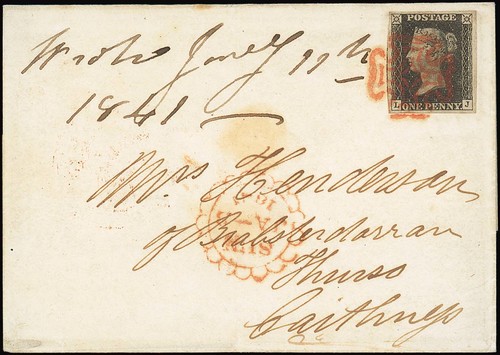 POSTAGE
L J
ONE PENNY
Jany 11th
1841
Mrs Henderson
of Brabsterdorran
Thurso
Caithness